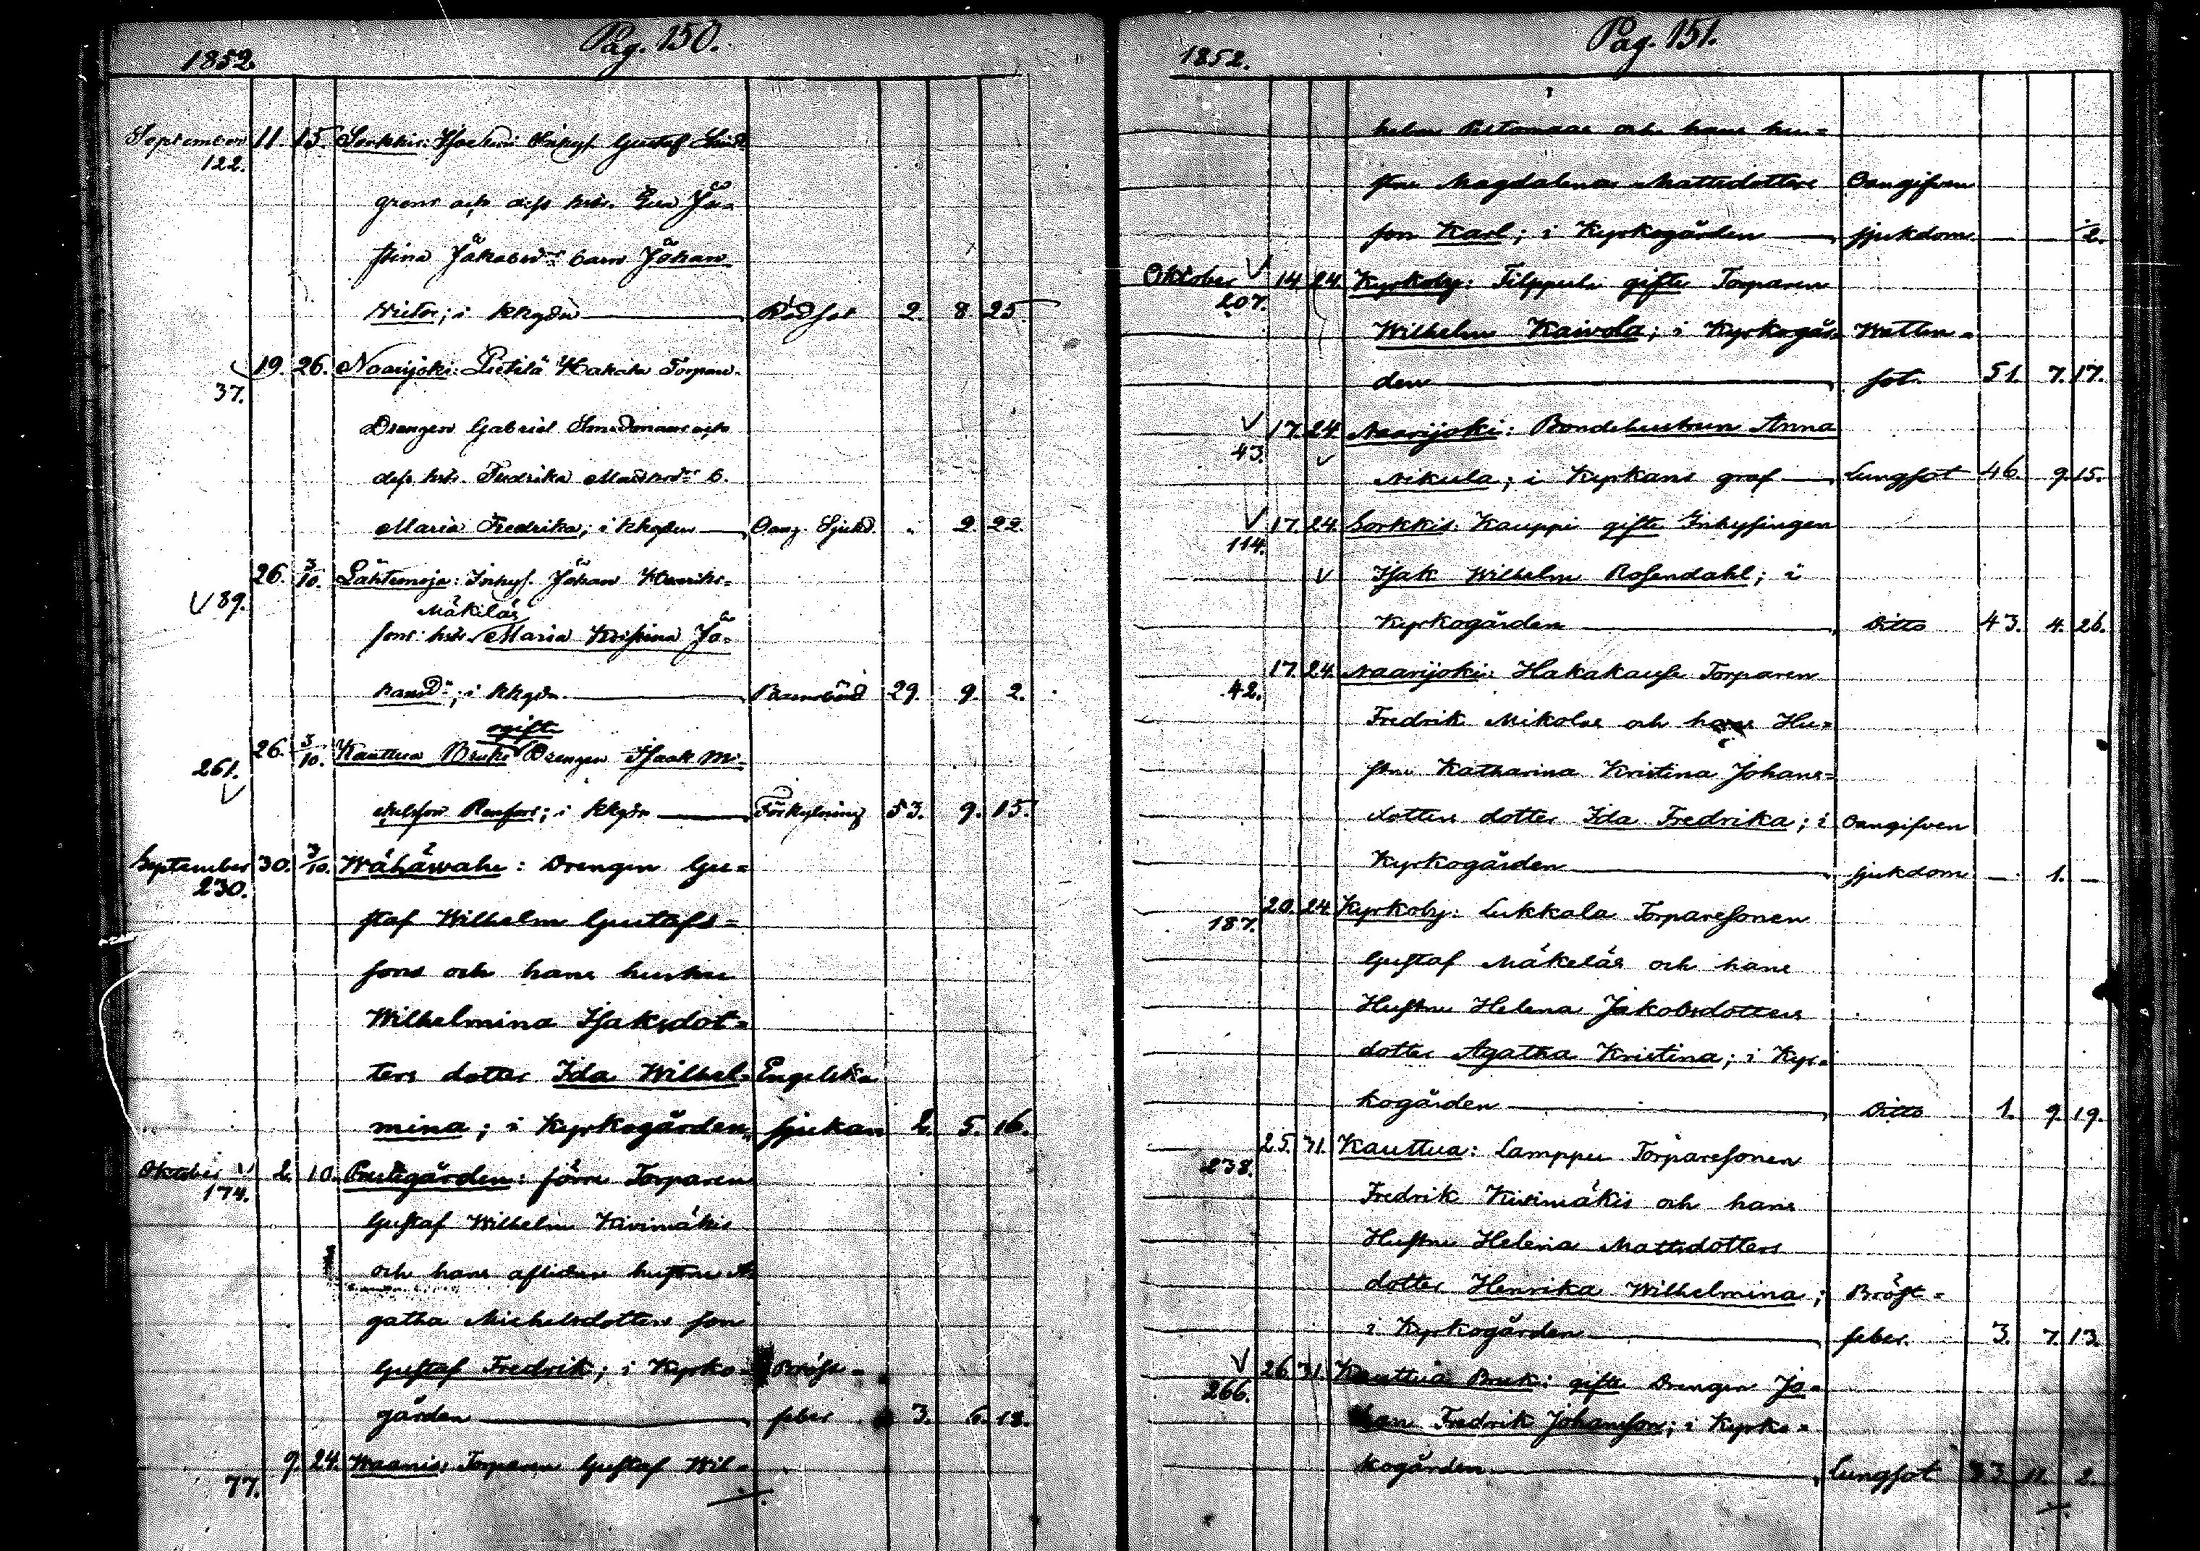 1852.
Pag. 150.
September 11. 15. Sorkkis: Inhys. Gustaf Lind-
122.
grens och dess hu. Eva Ju-
stina Jakobsd:s barn Johan
Victor; i kkgdn Rödsot 2. 8 25
19. 26. Naarijoki: Torpare-
37.
Drengen Gabriel och
dess hu. Fredrika b.
Maria Fredrika; i kkgden Oang. Sjukd. " 2 22.
26. 3/10. Lähtenoja: Inhys. Johan Henriks-
89. Mäkiläs
sons hu. Maria Kristina Jo-
hansd:r; i kkgdn. Barnsbörd 29. 9. 2.
ogifte
26. 3/10. Kauttua Bruk: Drengen Isaak Mi-
261.
chelsson Renfors; i kkgdn Förkylning 53. 9. 15.
September 30. 3/10. Wähäwahe: Drengen Gu-
230.
staf Wilhelm Gustafs-
sons och hans hustru
Wilhelmina Isaksdot-
ters dotter Ida Wilhel- Engelska
mina; i Kyrkogården. sjukan 2. 5. 16.
Oktober 2. 10. Prestegården: förre Torparen
174.
Gustaf Wilhelm Kivimäkis
och hans aflidne hustru A-
gatha Michelsdotters son
Gustaf Fredrik; i Kyrko- Bröst-
gården feber 3. 6. 18.
9. 24. Waanis: Torparen Gustaf Wil-
77.
1852.
Pag. 151.
helm Ristomaas och hans hu-
stru Magdalena Mattsdotters Oangifven
son Karl; i Kyrkogården sjukdom 2.
Oktober 14. 24. Kyrkoby: Filppula gifte Torparen
207.
Wilhelm Kaivola; i Kyrkogår- Watten-
den sot. 51. 7. 17.
17. 24 Naarijoki: Bondehustrun Anna
43.
Nikula; i Kyrkans graf Lungsot 46. 9. 15.
17. 24. Sorkkis: Kauppi gifte Inhysingen
114.
Isak Wilhelm Rosendahl; i
Kyrkogården Ditto 43. 4. 26.
17. 24. Naarijoki: Hakakause Torparen
42.
Fredrik Mikolas och hans Hu-
stru Katharina Kristina Johans-
dotters dotter Ida Fredrika; i Oangifven
Kyrkogården sjukdom — 1. —
20. 24. Kyrkoby: Lukkala Torparesonen
187.
Gustaf Mäkeläs och hans
Hustru Helena Jakobsdotters
dotter Agatha Kristina; i Kyr-
kogården Ditto 1. 9. 19.
25. 31. Kauttua: Lamppu Torparesonen
238.
Fredrik Kivimäkis och hans
Hustru Helena Mattsdotters
dotter Henrika Wilhelmina; Bröst-
i Kyrkogården feber. 3. 7. 13.
26. 31. Kauttua Bruk: gifte Drengen Jo-
266.
han Fredrik Johansson; i Kyrko-
kogården Lungsot 33. 11. 2.